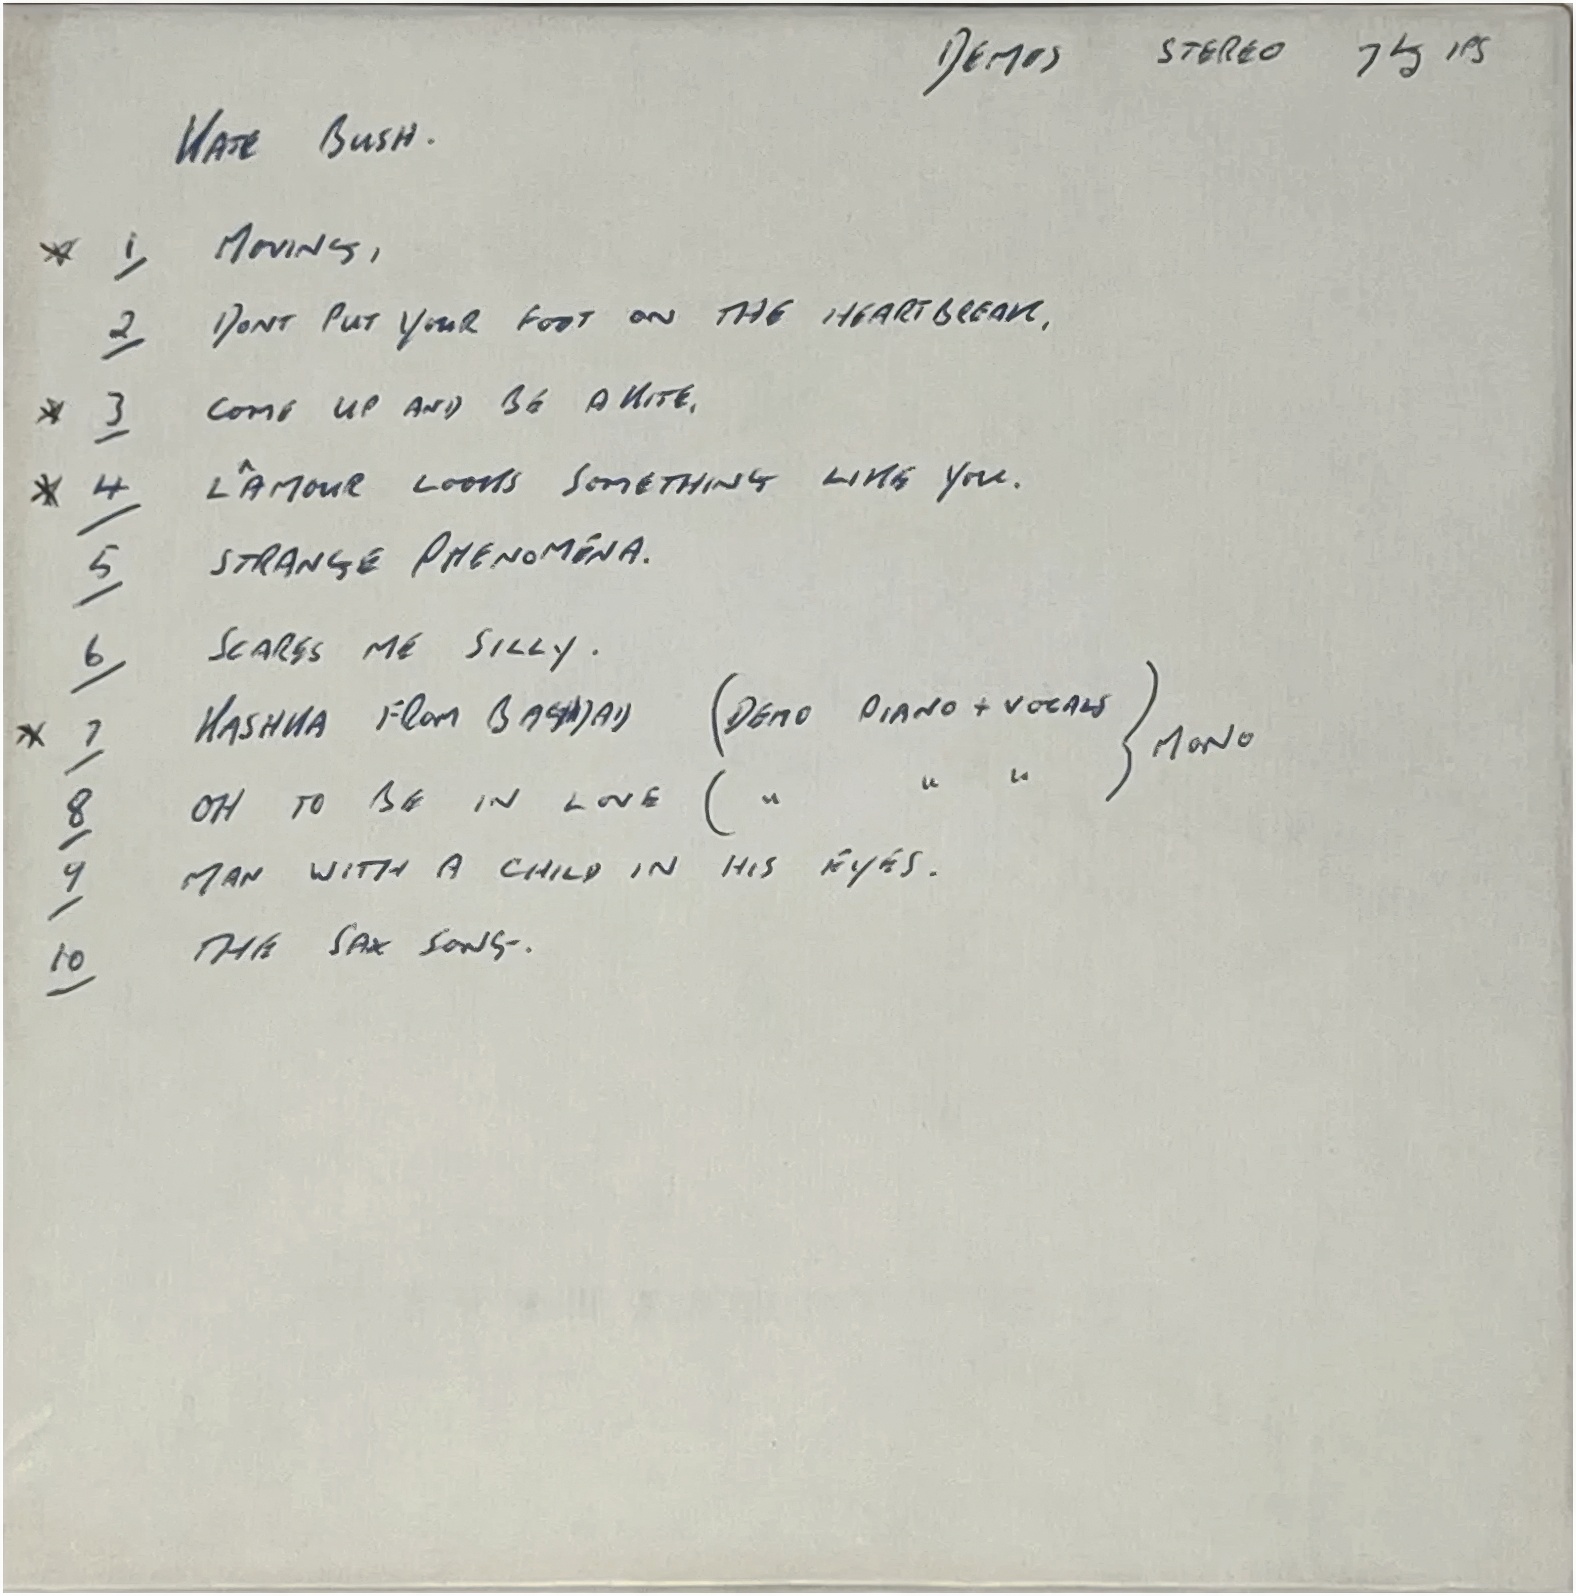 DEMOS STEREO 7½ IPS
KATE BUSH.
* 1 MOVING,
2 DONT PUT YOUR FOOT ON THE HEARTBREAK,
* 3 COME UP AND BE A KITE,
* 4 L^AMOUR LOOKS SOMETHING LIKE YOU.
5 STRANGE PHENOMENA.
6 SCARES ME SILLY.
* 7 KASHKA FROM BAGHDAD (DEMO PIANO + VOCALS } MONO
8 OH TO BE IN LOVE ( " " "
9 MAN WITH A CHILD IN HIS EYES.
10 THE SAX SONG.